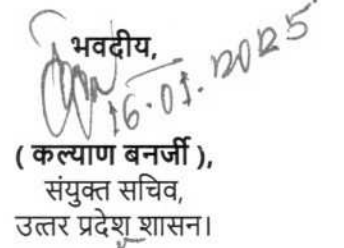 भवदीय,
16.01.2025
( कल्याण बनर्जी ),
संयुक्त सचिव,
उत्तर प्रदेश शासन।